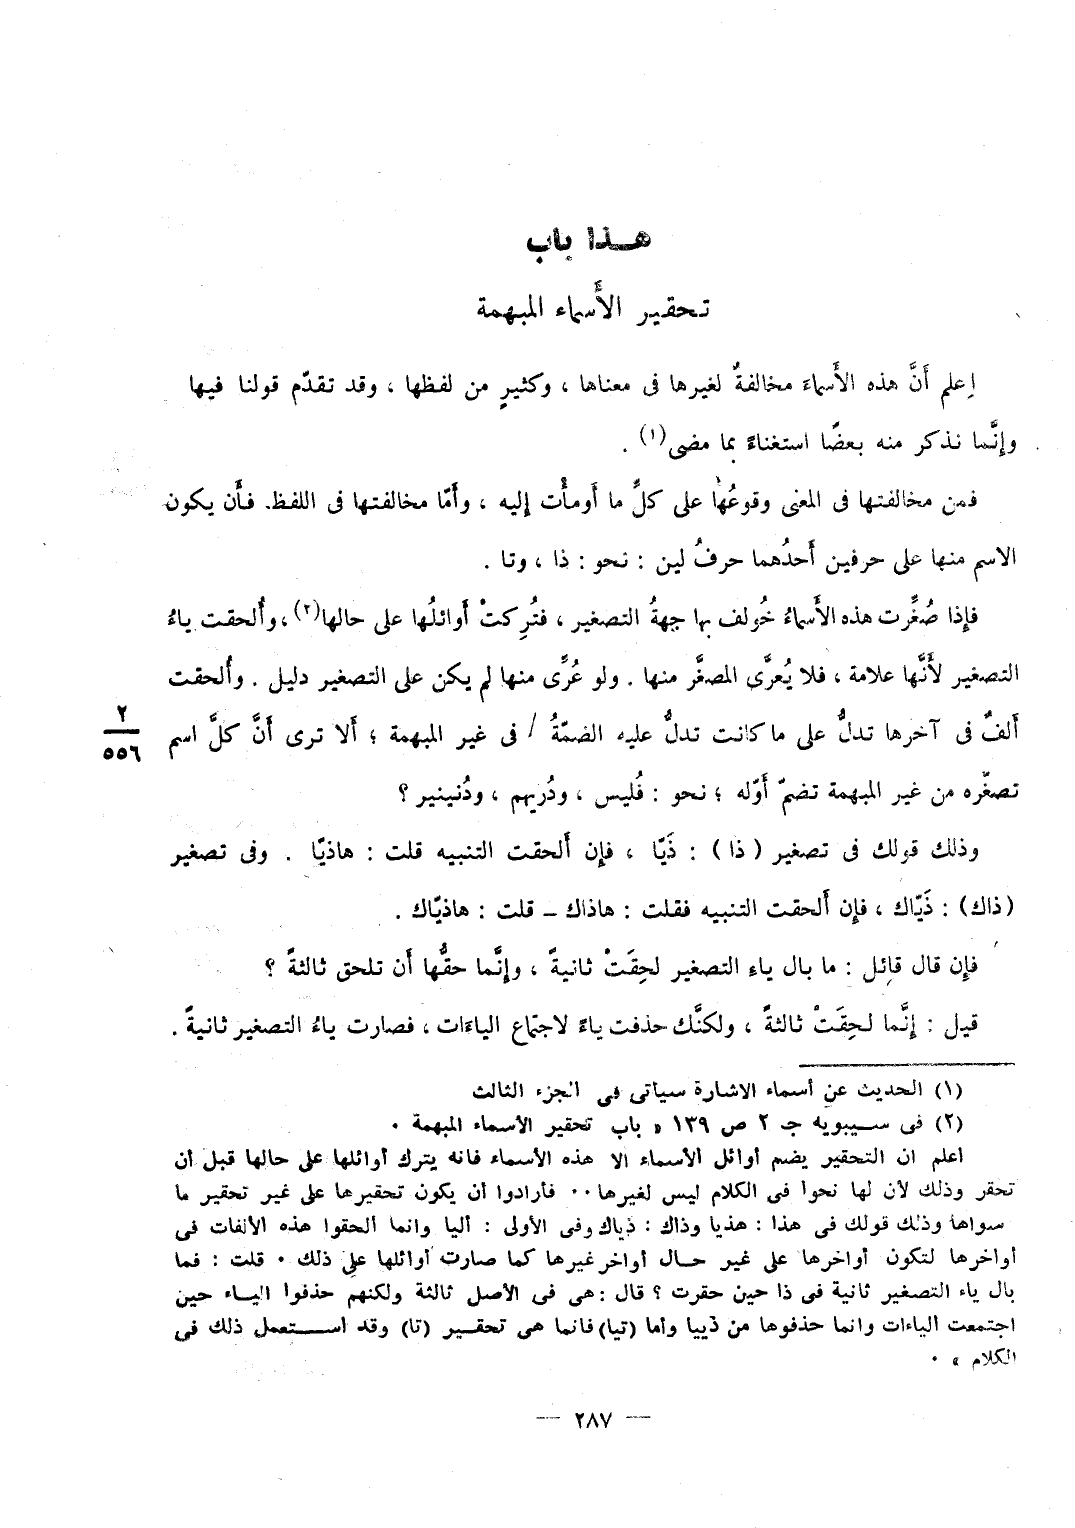 هـذا باب
تحقير الأَسماء المبهمة
اِعلم أَنَّ هذه الأَسماءَ مخالفةٌ لغيرها فى معناها ، وكثيرٍ من لفظها ، وقد تقدّم قولنا فيها
وإنَّما نذكر منه بعضًا استغناءً بما مضى(١) .
فمن مخالفتها فى المعنى وقوعُها على كلِّ ما أَومأْت إليه ، وأَمّا مخالفتها فى اللفظ. فأَن يكون
الاسم منها على حرفين أَحدُهما حرفُ لين : نحو : ذا ، وتا .
فإِذا صُغِّرت هذه الأَسماءُ خُولف بها جهةُ التصغير ، فتُرِكتْ أَوائلُها على حالها(٢) ، وأُلحقت ياءُ
التصغير لأَنَّها علامة ، فلا يُعرَّى المصغَّر منها . ولو عُرِّى منها لم يكن على التصغير دليل . وأُلحقت
أَلفٌ فى آخرها تدلُّ على ما كانت تدلُّ عليه الضمّةُ / فى غير المبهمة ؛ أَلا ترى أَنَّ كلَّ اسم
٢
٥٥٦
تصغّره من غير المبهمة تضمّ أَوّله ؛ نحو : فُليس ، ودُريهم ، ودُنينير ؟
وذلك قولك فى تصغير ( ذا ) : ذَيّا ، فإِن أَلحقت التنبيه قلت : هاذيّا . وفى تصغير
(ذاك) : ذَيّاك ، فإِن أَلحقت التنبيه فقلت : هاذاك ــ قلت : هاذيّاك .
فإِن قال قائِل : ما بال ياءِ التصغير لحِقَتْ ثانيةً ، وإنَّما حقُّها أَن تلحق ثالثةً ؟
قيل : إنَّما لحِقَتْ ثالثةً ، ولكنَّك حذفت ياءً لاجتماع الياءَات ، فصارت ياءُ التصغير ثانيةً .
(١) الحديث عن أسماء الاشارة سياتى فى الجزء الثالث
(٢) فى سـيبويه جـ ٢ ص ١٣٩ « باب تحقير الأسماء المبهمة ٠
اعلم ان التحقير يضم أوائل الأسماء الا هذه الأسماء فانه يترك أوائلها على حالها قبل أن
تحقر وذلك لأن لها نحوا فى الكلام ليس لغيرها ٠٠ فأرادوا أن يكون تحقيرها على غير تحقير ما
سواها وذلك قولك فى هذا : هذيا وذاك : ذياك وفى الأولى : أليا وانما الحقوا هذه الألفات فى
أواخرها لتكون أواخرها على غير حـال أواخر غيرها كما صارت أوائلها على ذلك ٠ قلت : فما
بال ياء التصغير ثانية فى ذا حين حقرت ؟ قال : هى فى الأصل ثالثة ولكنهم حذفوا اليـاء حين
اجتمعت الياءات وانما حذفوها من ذييا وأما (تيا) فانما هى تحقـير (تا) وقد استعمل ذلك فى
الكلام » ٠
— ٢٨٧ —